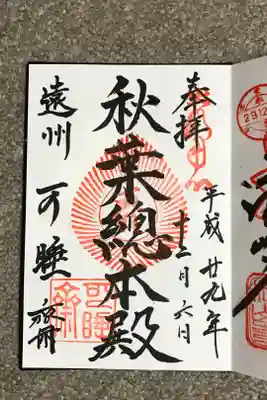 奉拝
平成廿九年
十二月六日
秋葉總本殿
遠州 可睡斎
29.12